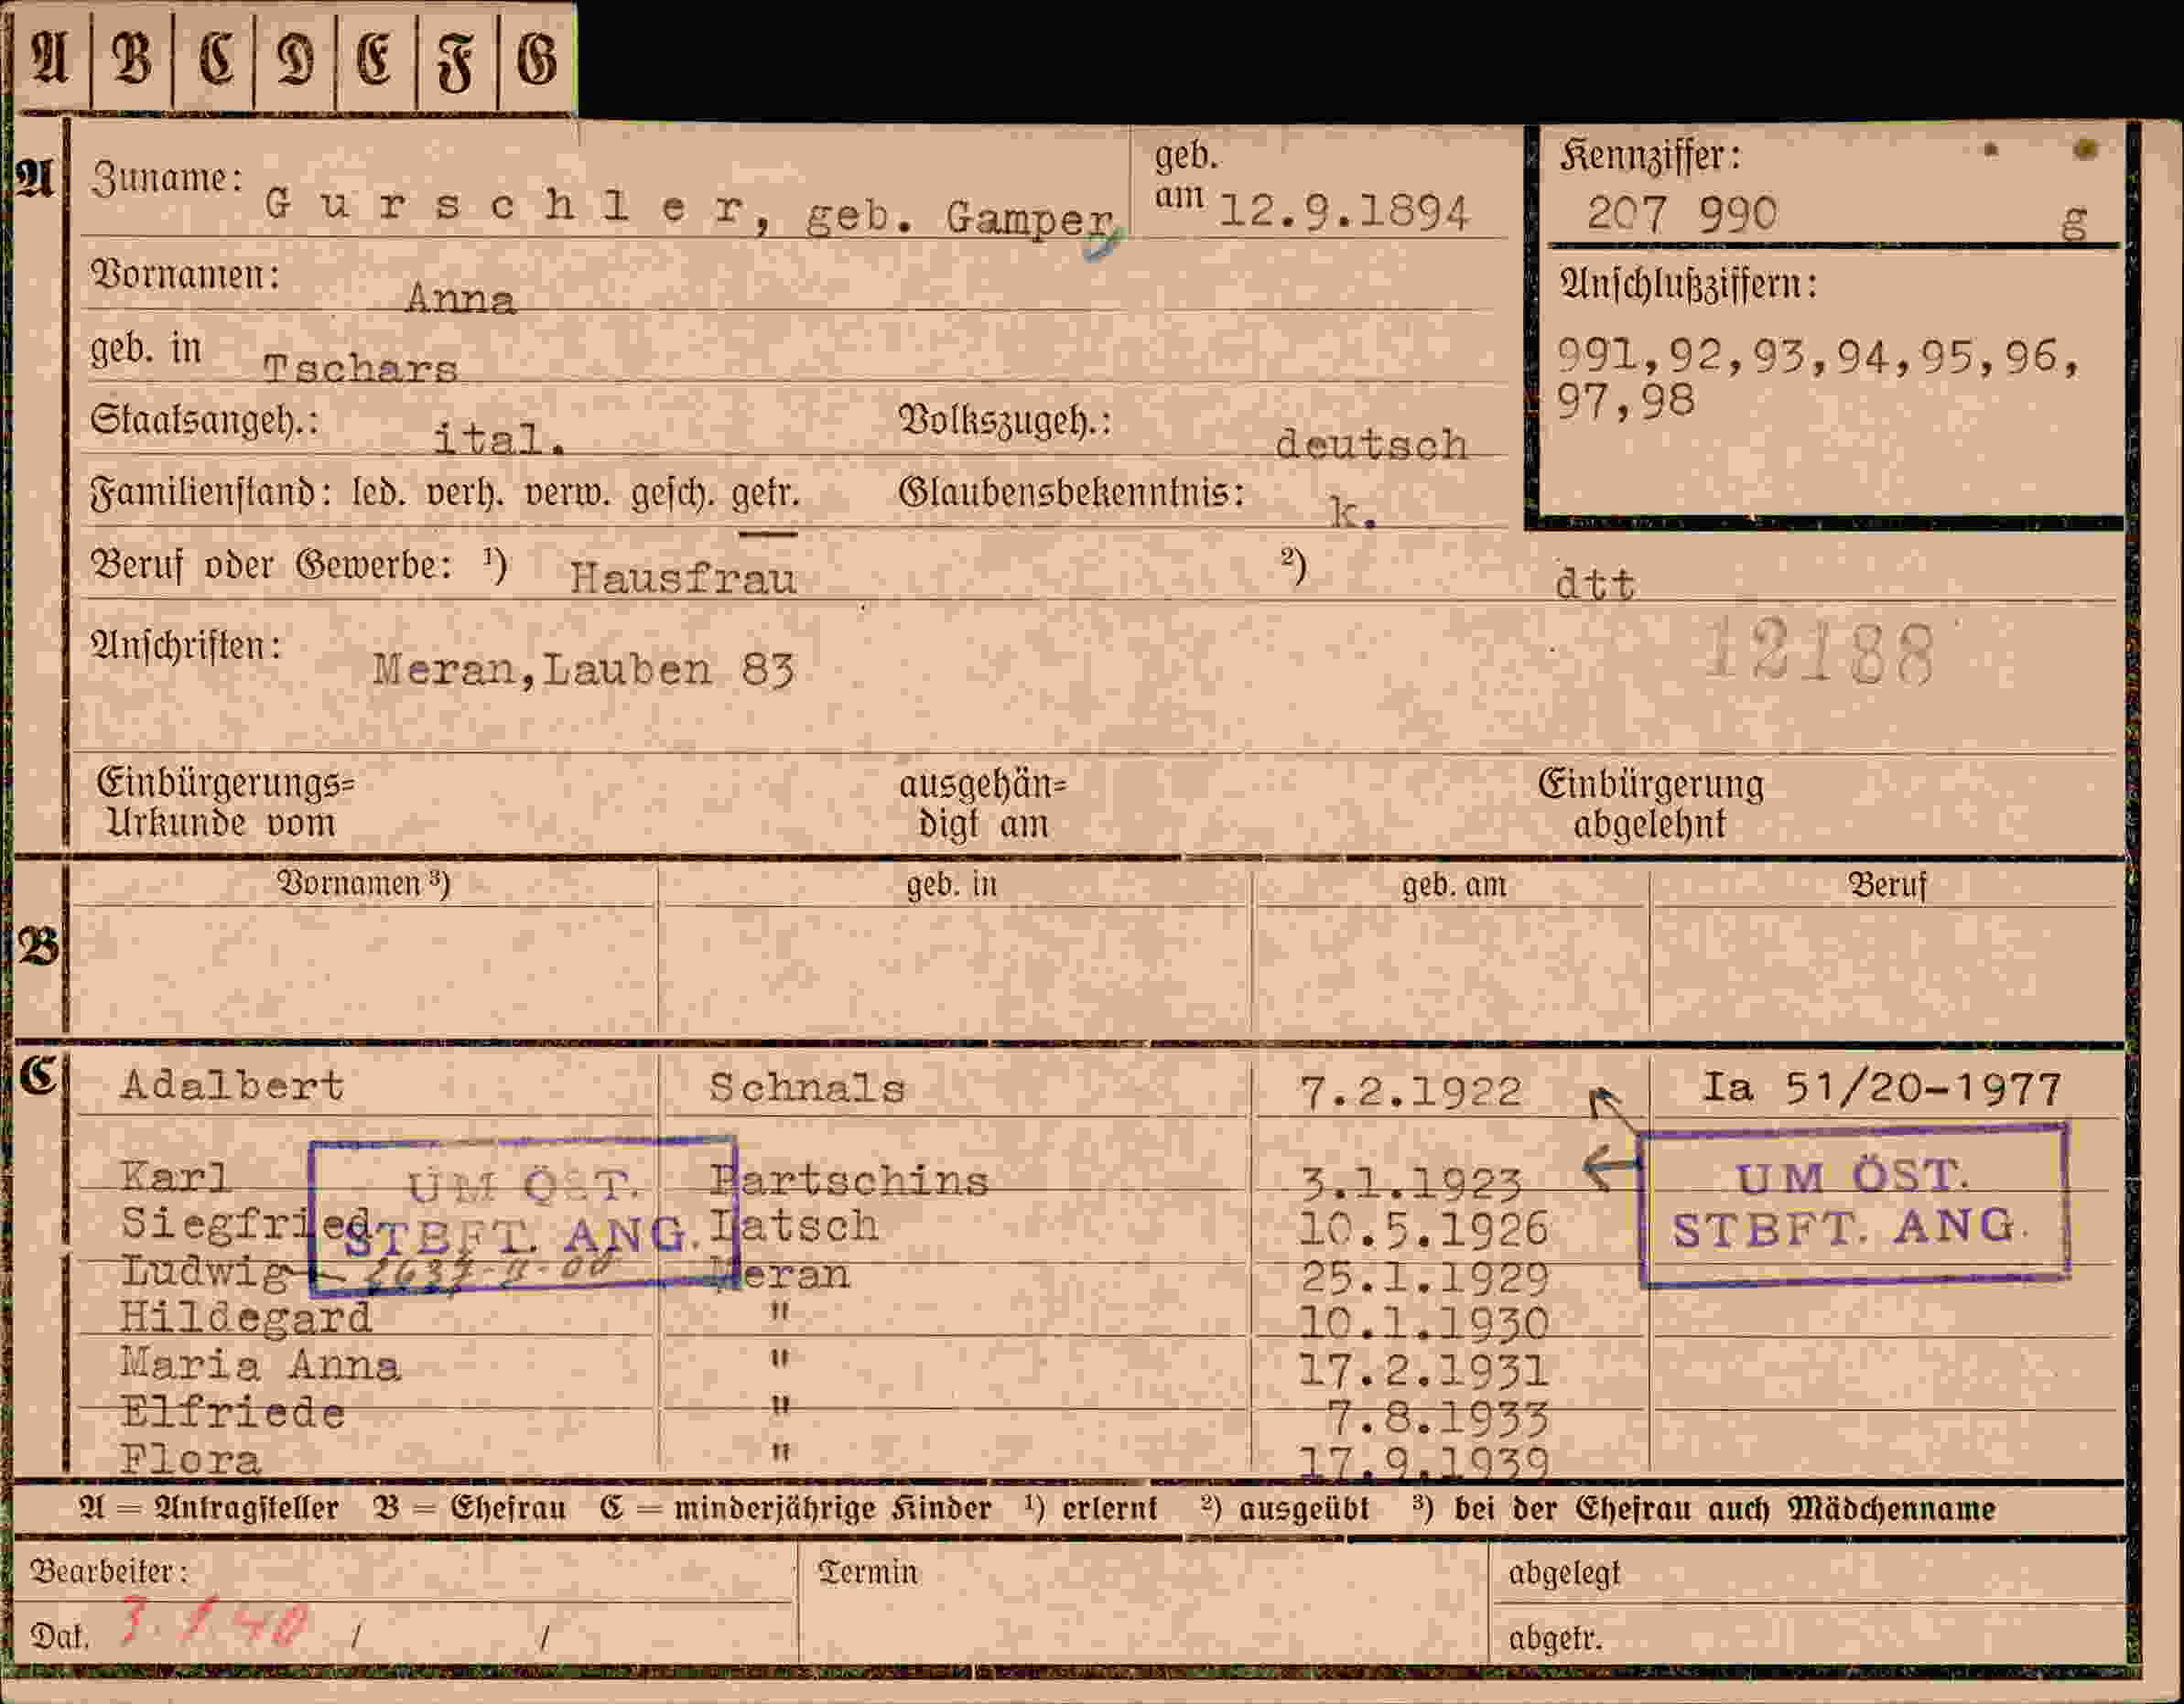 A B C D E F G
A Zuname: Gurschler, geb. Gamper geb. am 12.9.1894
Kennziffer:
207 990 g
Vornamen: Anna
Anschlußziffern:
991,92,93,94,95,96,
97,98
geb. in Tschars
Staatsangeh.: ital. Volkszugeh.: deutsch
Familienstand: led. verh. verw. gesch. getr. Glaubensbekenntnis: k.
Beruf oder Gewerbe: 1) Hausfrau 2) dtt
12188
Anschriften: Meran,Lauben 83
Einbürgerungs= ausgehän= Einbürgerung
Urkunde vom digt am abgelehnt
B Vornamen 3) geb. in geb. am Beruf
C Adalbert Schnals 7.2.1922 Ia 51/20-1977
Karl Partschins 3.1.1923
UM ÖST.
STBFT. ANG.
UM ÖST.
STBFT. ANG.
Siegfried Latsch 10.5.1926
Ludwig Meran 25.1.1929
Hildegard " 10.1.1930
Maria Anna " 17.2.1931
Elfriede " 7.8.1933
Flora " 17.9.1939
A = Antragsteller B = Ehefrau C = minderjährige Kinder 1) erlernt 2) ausgeübt 3) bei der Ehefrau auch Mädchenname
Bearbeiter: Termin abgelegt
Dat. 3.1.40 / / abgetr.